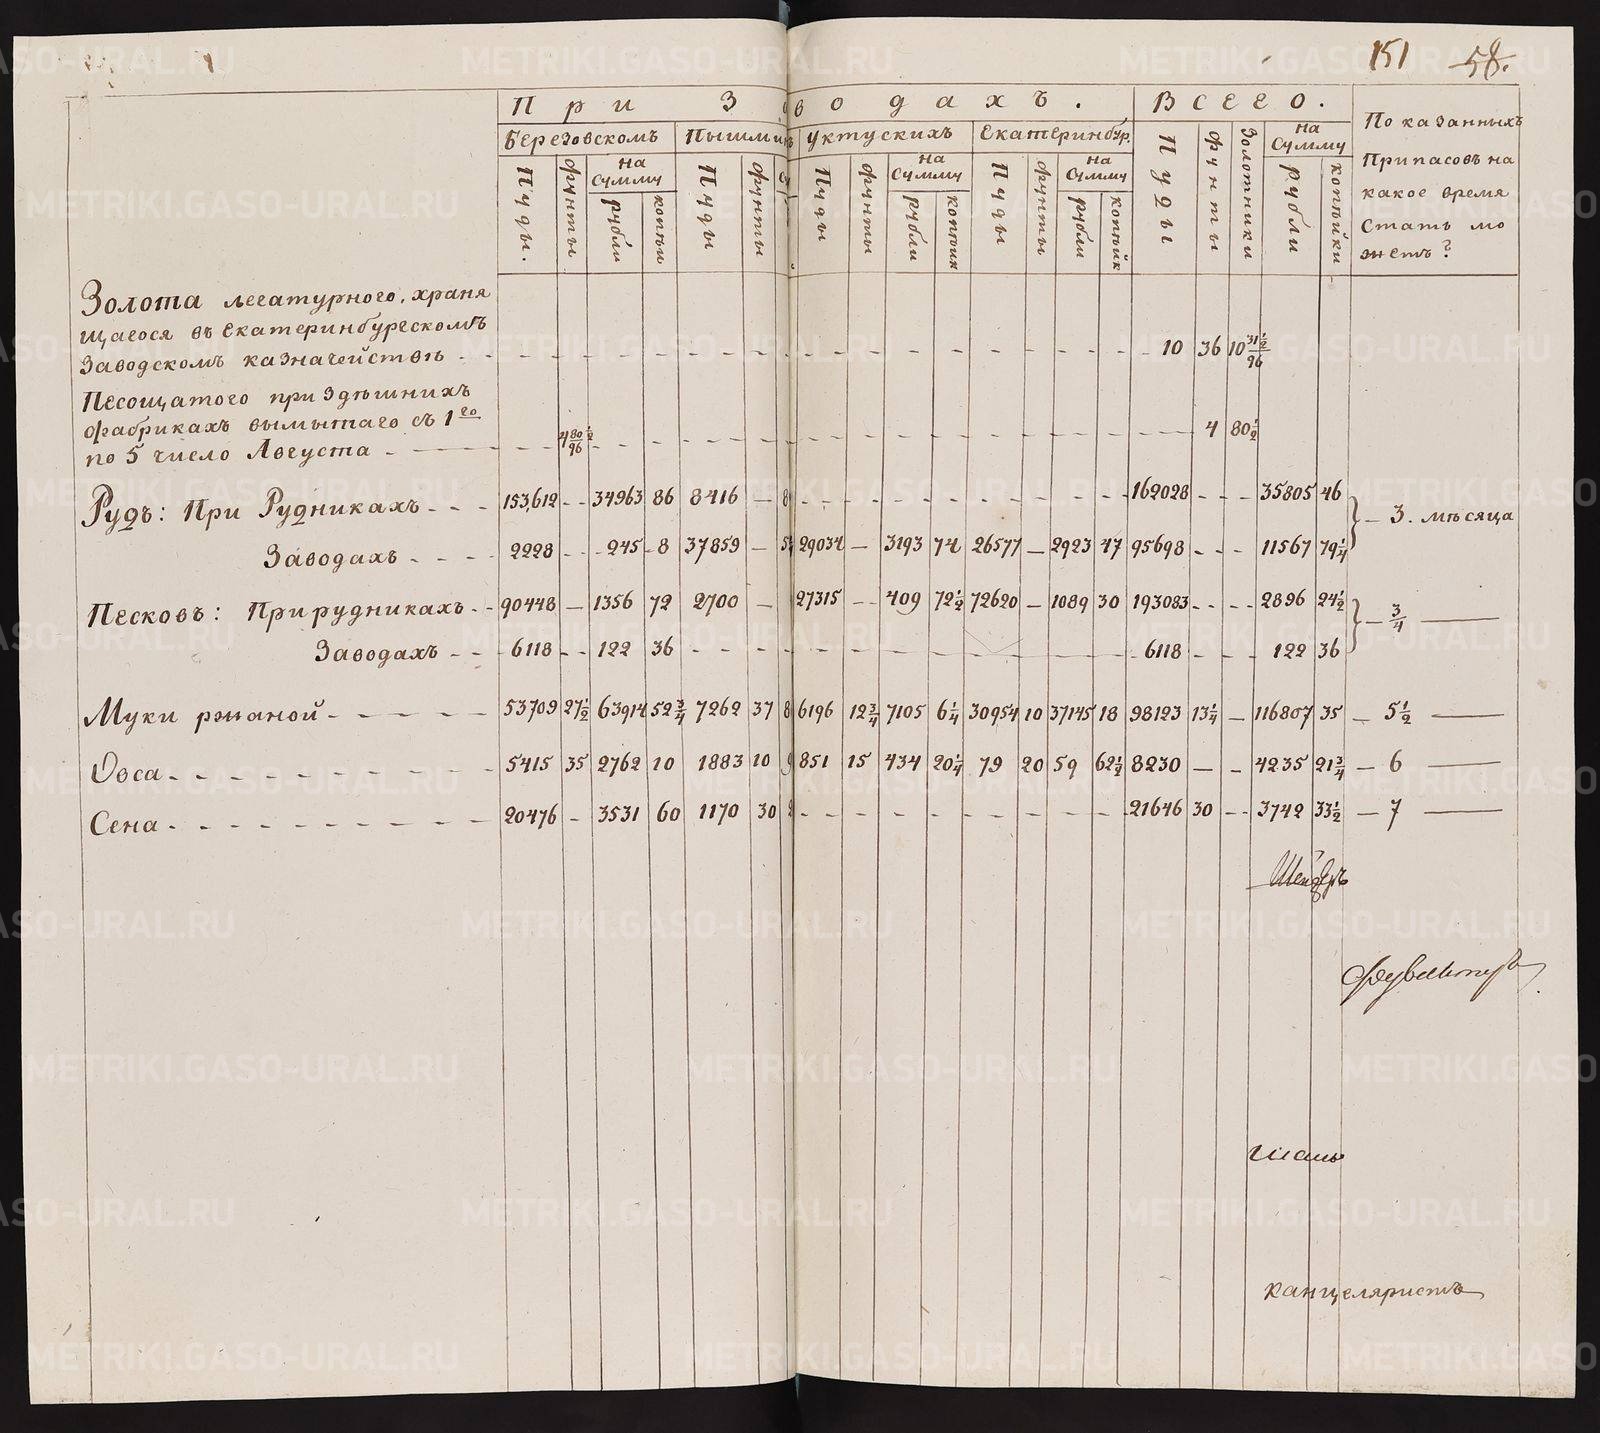 151 58.
При Заводахъ. Всего.
Березовскомъ Пышмин Уктускихъ Екатеринбур. По казанныхъ
Припасовъ на
какое время
Стать мо
жетъ?
на Сумму на Сумму на Сумму на Сумму
Пуды. фунты рубли копѣи Пуды фунты Пуды фунты рубли копѣик Пуды фунты рубли копѣйк Пуды фунты Золотники рубли копѣйки
Золота легатурного, храня
щагося въ Екатеринбургскомъ
Заводскомъ казначействѣ - - - 10 36 10 31½/96
Песощатого при здѣшнихъ
фабрикахъ вымытаго съ 1го
по 5 число Августа - 4 80½/96 - - - 4 80½
Рудъ: При Рудникахъ - - - 153,612 - - 34963 86 8416 — - - - 162028 - - - 35805 46 } - 3. мѣсяца
Заводахъ - - - - 2228 - - - 245 - 8 37859 — 29034 — 3193 74 26577 — 2923 47 95698 - - - 11567 79¼
Песковъ: При рудникахъ - - 90448 — 1356 72 2700 — 27315 - - 409 72½ 72620 — 1089 30 193083 - - - - 2896 24½ } - ¾ —
Заводахъ - - - 6118 - - 122 36 - - - 6118 - - - 122 36
Муки ржаной - - - - - 53709 27½ 63914 52¾ 7262 37 6196 12¾ 7105 6¼ 30954 10 37145 18 98123 13¼ — 116807 35 — 5½ —
Овса - - - - - 5415 35 2762 10 1883 10 851 15 434 20¼ 79 20 59 62½ 8230 — - 4235 21¾ — 6 —
Сена - - - - - 20476 - 3531 60 1170 30 - - - 21646 30 - - 3742 33½ — 7 —
канцеляристъ
METRIKI.GASO-URAL.RU